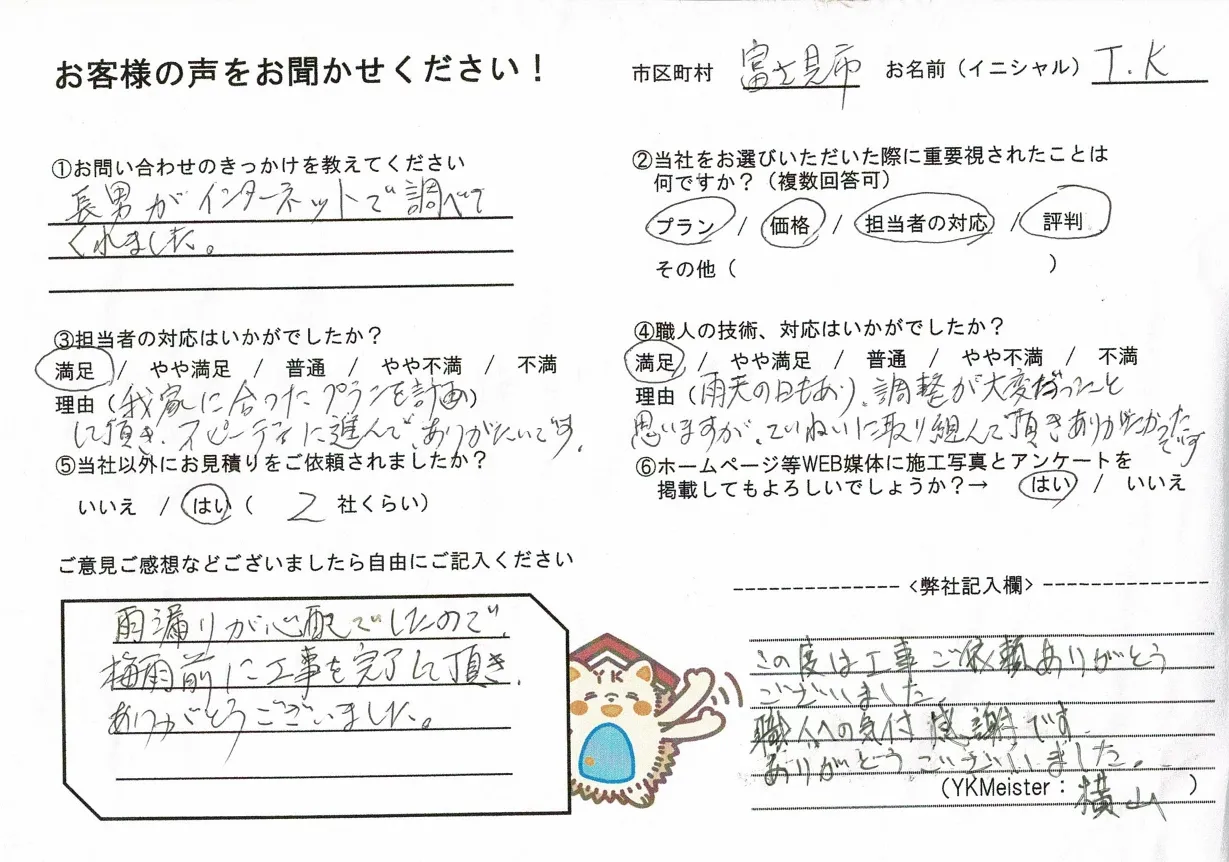 お客様の声をお聞かせください！
市区町村 富士見市 お名前（イニシャル） T.K
①お問い合わせのきっかけを教えてください
長男がインターネットで調べて
くれました。
②当社をお選びいただいた際に重要視されたことは
何ですか？（複数回答可）
プラン / 価格 / 担当者の対応 / 評判
その他（ ）
③担当者の対応はいかがでしたか？
満足 / やや満足 / 普通 / やや不満 / 不満
理由（我家に合ったプランを計画）
して頂き、スピーディに進んで、ありがたいです。
④職人の技術、対応はいかがでしたか？
満足 / やや満足 / 普通 / やや不満 / 不満
理由（雨天の日もあり、調整が大変だったこと
思いますが、ていねいに取り組んで頂きありがたかった
です
⑤当社以外にお見積りをご依頼されましたか？
いいえ / はい（ 2 社くらい）
⑥ホームページ等WEB媒体に施工写真とアンケートを
掲載してもよろしいでしょうか？→ はい / いいえ
ご意見ご感想などございましたら自由にご記入ください
雨漏りが心配でしたので、
梅雨前に工事を完了して頂き、
ありがとうございました。
YK
<弊社記入欄>
この度は工事ご依頼ありがとう
ございました。
職人への気付感謝です
ありがとうございました。
（YKMeister：横山 ）